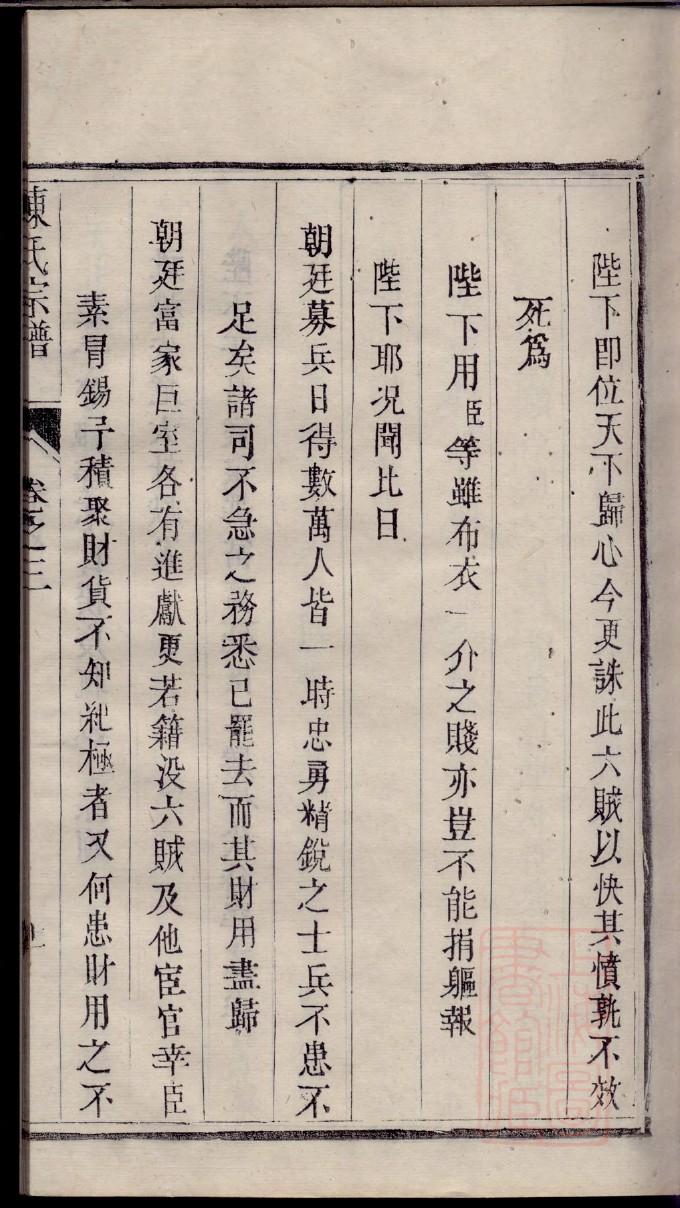 陛下卽位天下歸心今更誅此六賊以快其憤孰不效
死爲
陛下用臣等雖布衣一介之賤亦豈不能捐軀報
陛下耶况聞比日
朝廷募兵日得數萬人皆一時忠勇精銳之士兵不患不
足矣諸司不急之務悉已罷去而其財用盡歸
朝廷富家巨室各有進獻更若籍没六賊及他宦官幸臣
素冒錫予積聚財貨不知紀極者又何患財用之不
陳氏宗譜
卷之三